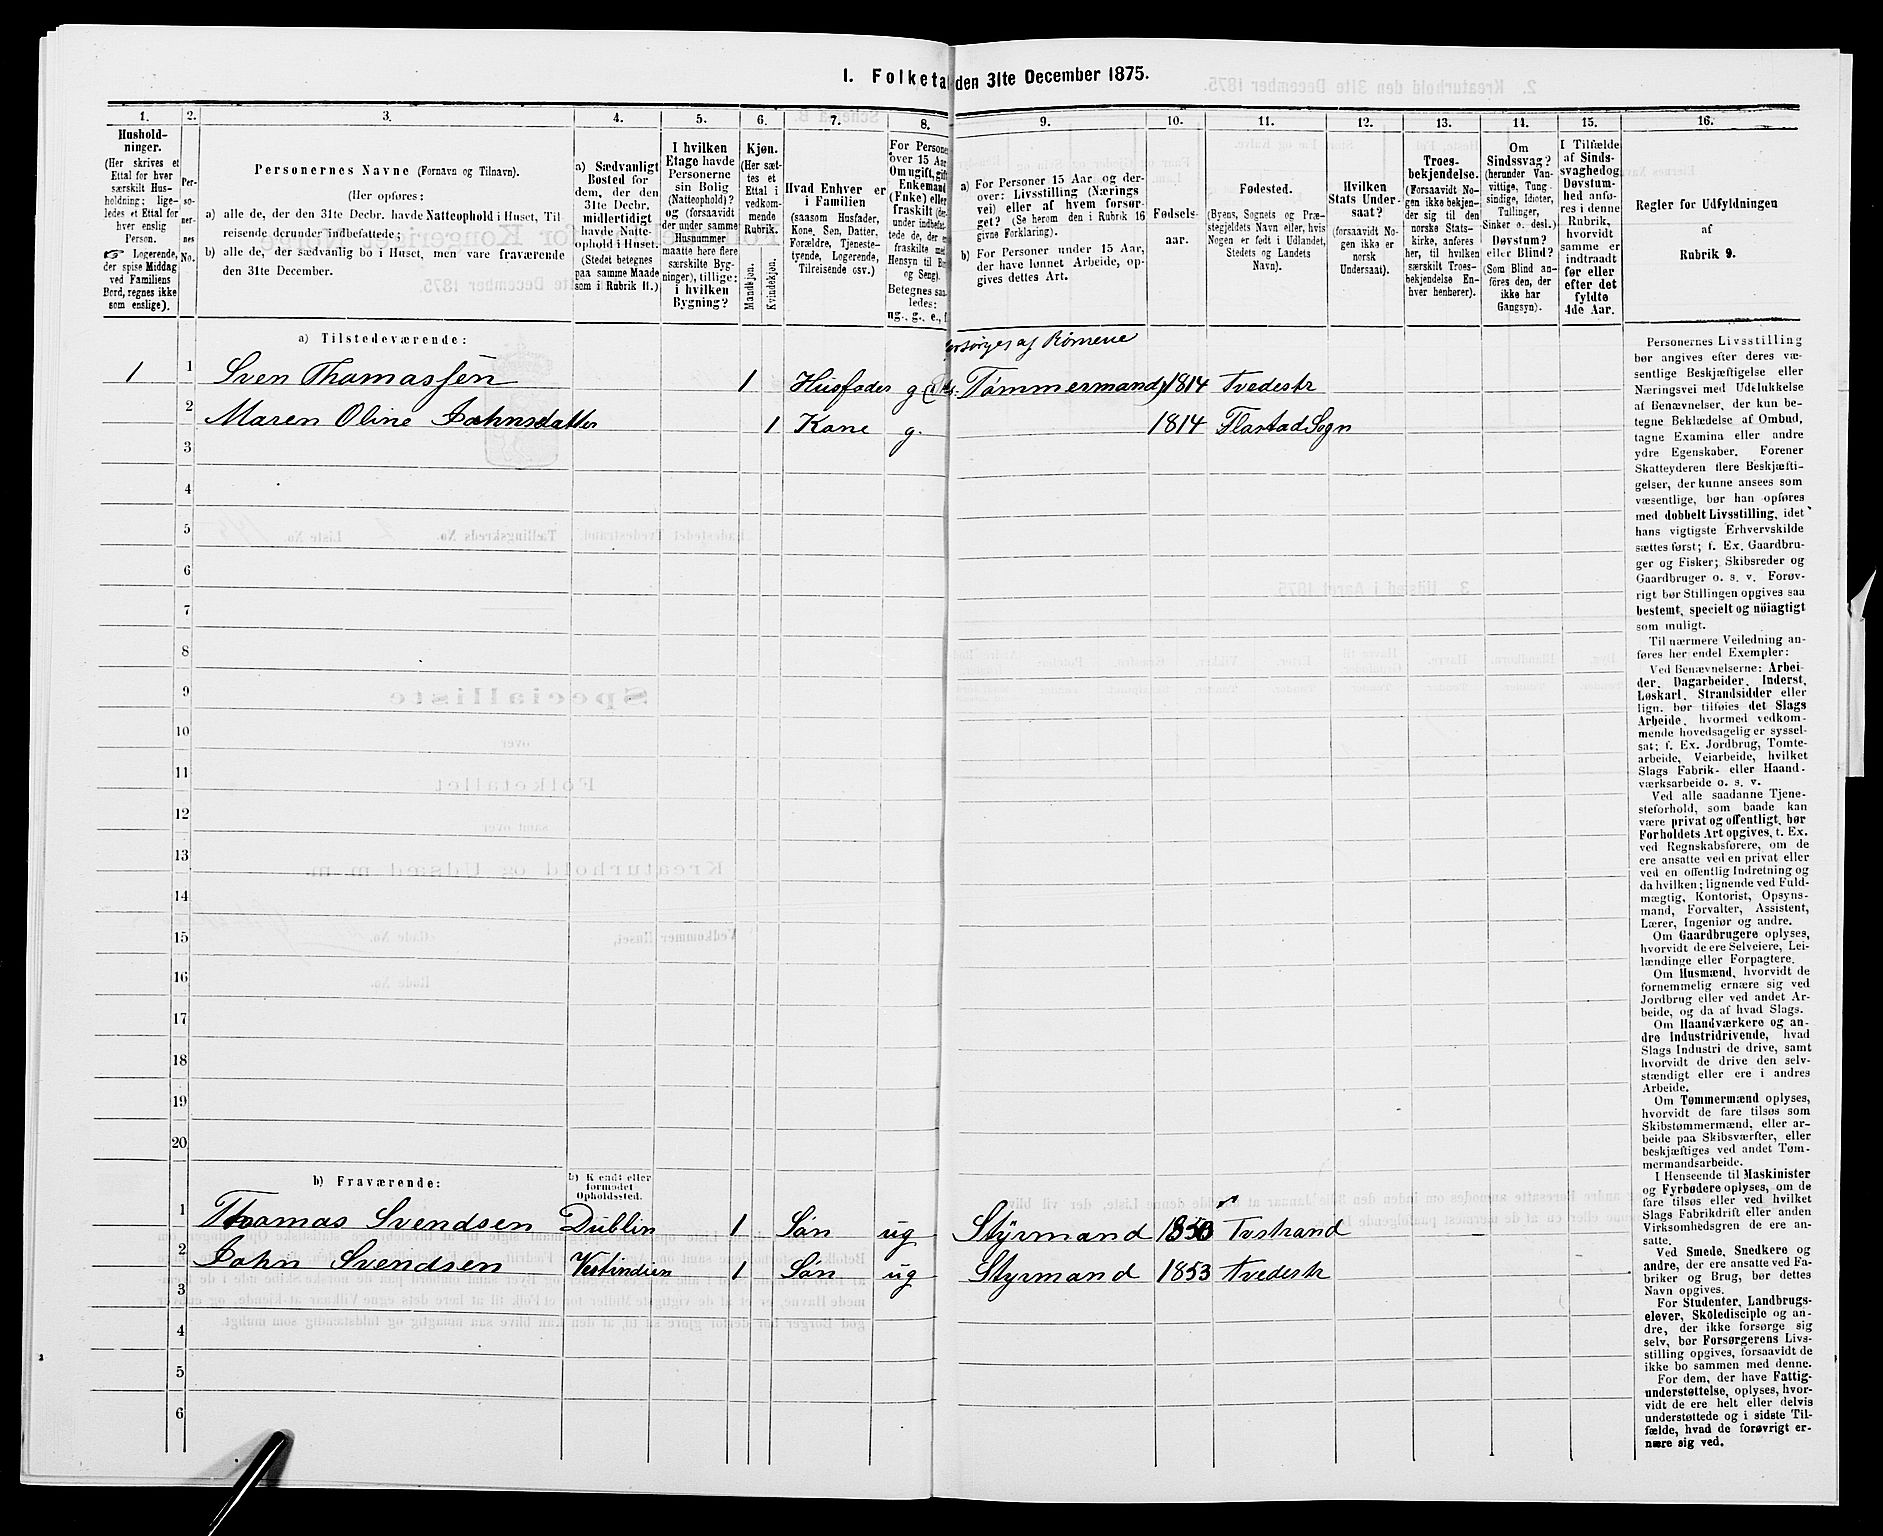 1. Folketal den 31te December 1875.
1.
Hushold-
ninger.
(Her skrives et
Ettal for hver
særskilt Hus-
holdning; lige-
ledes et Ettal for
hver enslig
Person.
☞ Logerende,
der spise Middag
ved Familiens
Bord, regnes ikke
som enslige).
2.
Per-
so-
ner-
nes
No.
3.
Personernes Navne (Fornavn og Tilnavn).
(Her opføres:
a) alle de, der den 31te Decbr. havde Natteophold i Huset, Til-
reisende derunder indbefattede;
b) alle de, der sædvanlig bo i Huset, men vare fraværende
den 31te December.
4.
a) Sædvanligt
Bosted for
dem, der den
31te Decbr.
midlertidigt
havde Natte-
ophold i Huset.
(Stedet betegnes
paa samme Maade
som i Rubrik 11.)
5.
I hvilken
Etage havde
Personerne
sin Bolig
(Natteophold)?
og (forsaavidt
der under samme
Husnummer
maatte høre flere
særskilte Byg-
ninger), tillige:
i hvilken
Bygning?
6.
Kjøn.
(Her sæt-
tes et
Ettal i
vedkom-
mende
Rubrik.
Mandkjøn.
Kvindekjøn.
7.
Hvad Enhver er
i Familien
(saasom Husfader,
Kone, Søn, Datter,
Forældre, Tjeneste-
tyende, Logerende,
Tilreisende osv.)
8.
For Personer
over 15 Aar:
Om ugift, gift,
Enkemand
(Enke) eller
fraskilt
Betegnes saa-
ledes:
ug., g., e., f.
9.
a) For Personer 15 Aar og der-
over: Livsstilling (Nærings-
vei) eller af hvem forsør-
get? (Se herom den i Rubrik 16
givne Forklaring).
b) For Personer under 15 Aar,
der have lønnet Arbeide, op-
gives dettes Art.
10.
Fødsels-
aar.
11.
Fødested.
(Byens, Sognets og Præ-
stegjeldets Navn eller, hvis
Nogen er født i Udlandet,
Stedets og Landets
Navn).
12.
Hvilken
Stats Under-
saat?
(forsaavidt No-
gen ikke er
norsk
Undersaat).
13.
Troes-
bekjendelse.
(Forsaavidt No-
gen ikke bekjen-
der sig til den
norske Stats-
kirke, anføres
her, til hvilken
særskilt Troes-
bekjendelse En-
hver henhører).
14.
Om
Sindssvag?
(herunder Van-
vittige, Tung-
sindige, Idioter,
Tullinger,
Sinker o. desl.)
Døvstum?
eller Blind?
(Som Blind an-
føres den, der
ikke har
Gangsyn).
15.
I Tilfælde
af Sinds-
svaghed og
Døvstum-
hed anfø-
res i denne
Rubrik,
hvorvidt
samme er
indtraadt
før eller
efter det
fyldte
4de Aar.
16.
Regler for Udfyldningen
af
Rubrik 9.
a) Tilstedeværende:
Forsørges af Sønnene
1 1 Sven Thomassen 1 Husfader g Tømmermand 1814 Tvedestr
2 Maren Oline Johnsdatter 1 Kone g. 1814 Flostad Sogn
3
4
5
6
7
8
9
10
11
12
13
14
15
16
17
18
19
20
b) Fraværende:
b) Kendt eller
formodet
Opholdssted.
1 Thomas Svendsen Dublin 1 Søn ug Styrmand 1850 Tvstrand
2 John Svendsen Vestindien 1 Søn ug Styrmand 1853 Tvedestr
3
4
5
6
Personernes Livsstilling
bør angives efter deres væ-
sentlige Beskjæftigelse eller
Næringsvei med Udelukkelse
af Benævnelser, der kun be-
tegne Beklædelse af Ombud,
tagne Examina eller andre
ydre Egenskaber. Forener
Skatteyderen flere Beskjæfti-
gelser, der kunne ansees som
væsentlige, bør han opføres
med dobbelt Livsstilling, idet
hans vigtigste Erhvervskilde
sættes først; f. Ex. Gaardbru-
ger og Fisker; Skibsreder og
Gaardbruger o. s. v. Forøv-
rigt bør Stillingen opgives saa
bestemt, specielt og nöiagtigt
som muligt.
Til nærmere Veiledning an-
føres her endel Exempler:
Ved Benævnelserne: Arbei-
der, Dagarbeider, Inderst,
Løskarl, Strandsidder eller
lign. bør tilføies det Slags
Arbeide, hvormed vedkom-
mende hovedsagelig er syssel-
sat; f. Ex. Jordbrug, Tomte-
arbeide, Veiarbeide, hvilket
Slags Fabrik- eller Haand-
værksarbeide o. s. v.
Ved alle saadanne Tjene-
steforhold, som baade kan
være privat og offentligt, bør
Forholdets Art opgives, t. Ex.
ved Regnskabsførere, om de
ere ansatte ved en privat eller
ved en offentlig Indretning og
da hvilken; lignende ved Fuld-
mægtig, Kontorist, Opsyns-
mand, Forvalter, Assistent,
Lærer, Ingeniør og andre.
Om Gaardbrugere oplyses,
hvorvidt de ere Selveiere, Lei-
lændinge eller Forpagtere.
Om Husmænd, hvorvidt de
fornemmelig ernære sig ved
Jordbrug eller ved andet Ar-
beide, og da af hvad Slags.
Om Haandværkere og an-
dre Industridrivende, hvad
Slags Industri de drive, samt
hvorvidt de drive den selv-
stændigt eller ere i andres
Arbeide.
Om Tømmermænd oplyses,
hvorvidt de fare tilsøs som
Skibstømmermænd, eller ar-
beide paa Skibsværfter, eller
beskjæftiges ved andet Tøm-
mermandsarbeide.
I Henseende til Maskinister
og Fyrbødere oplyses, om de
fare tilsøs eller ved hvilket
Slags Fabrikdrift eller anden
Virksomhedsgren de ere an-
satte.
Ved Smede, Snedkere og
andre, der ere ansatte ved Fa-
briker og Brug, bør dettes
Navn opgives.
For Studenter, Landbrugs-
elever, Skoledisciple og an-
dre, der ikke forsørge sig
selv, bør Forsørgerens Livs-
stilling opgives, forsaavidt de
ikke bo sammen med denne.
For dem, der have Fattig-
understøttelse, oplyses, hvor-
vidt de ere helt eller delvis
understøttede og i sidste Til-
fælde, hvad de forøvrigt er-
nære sig ved.